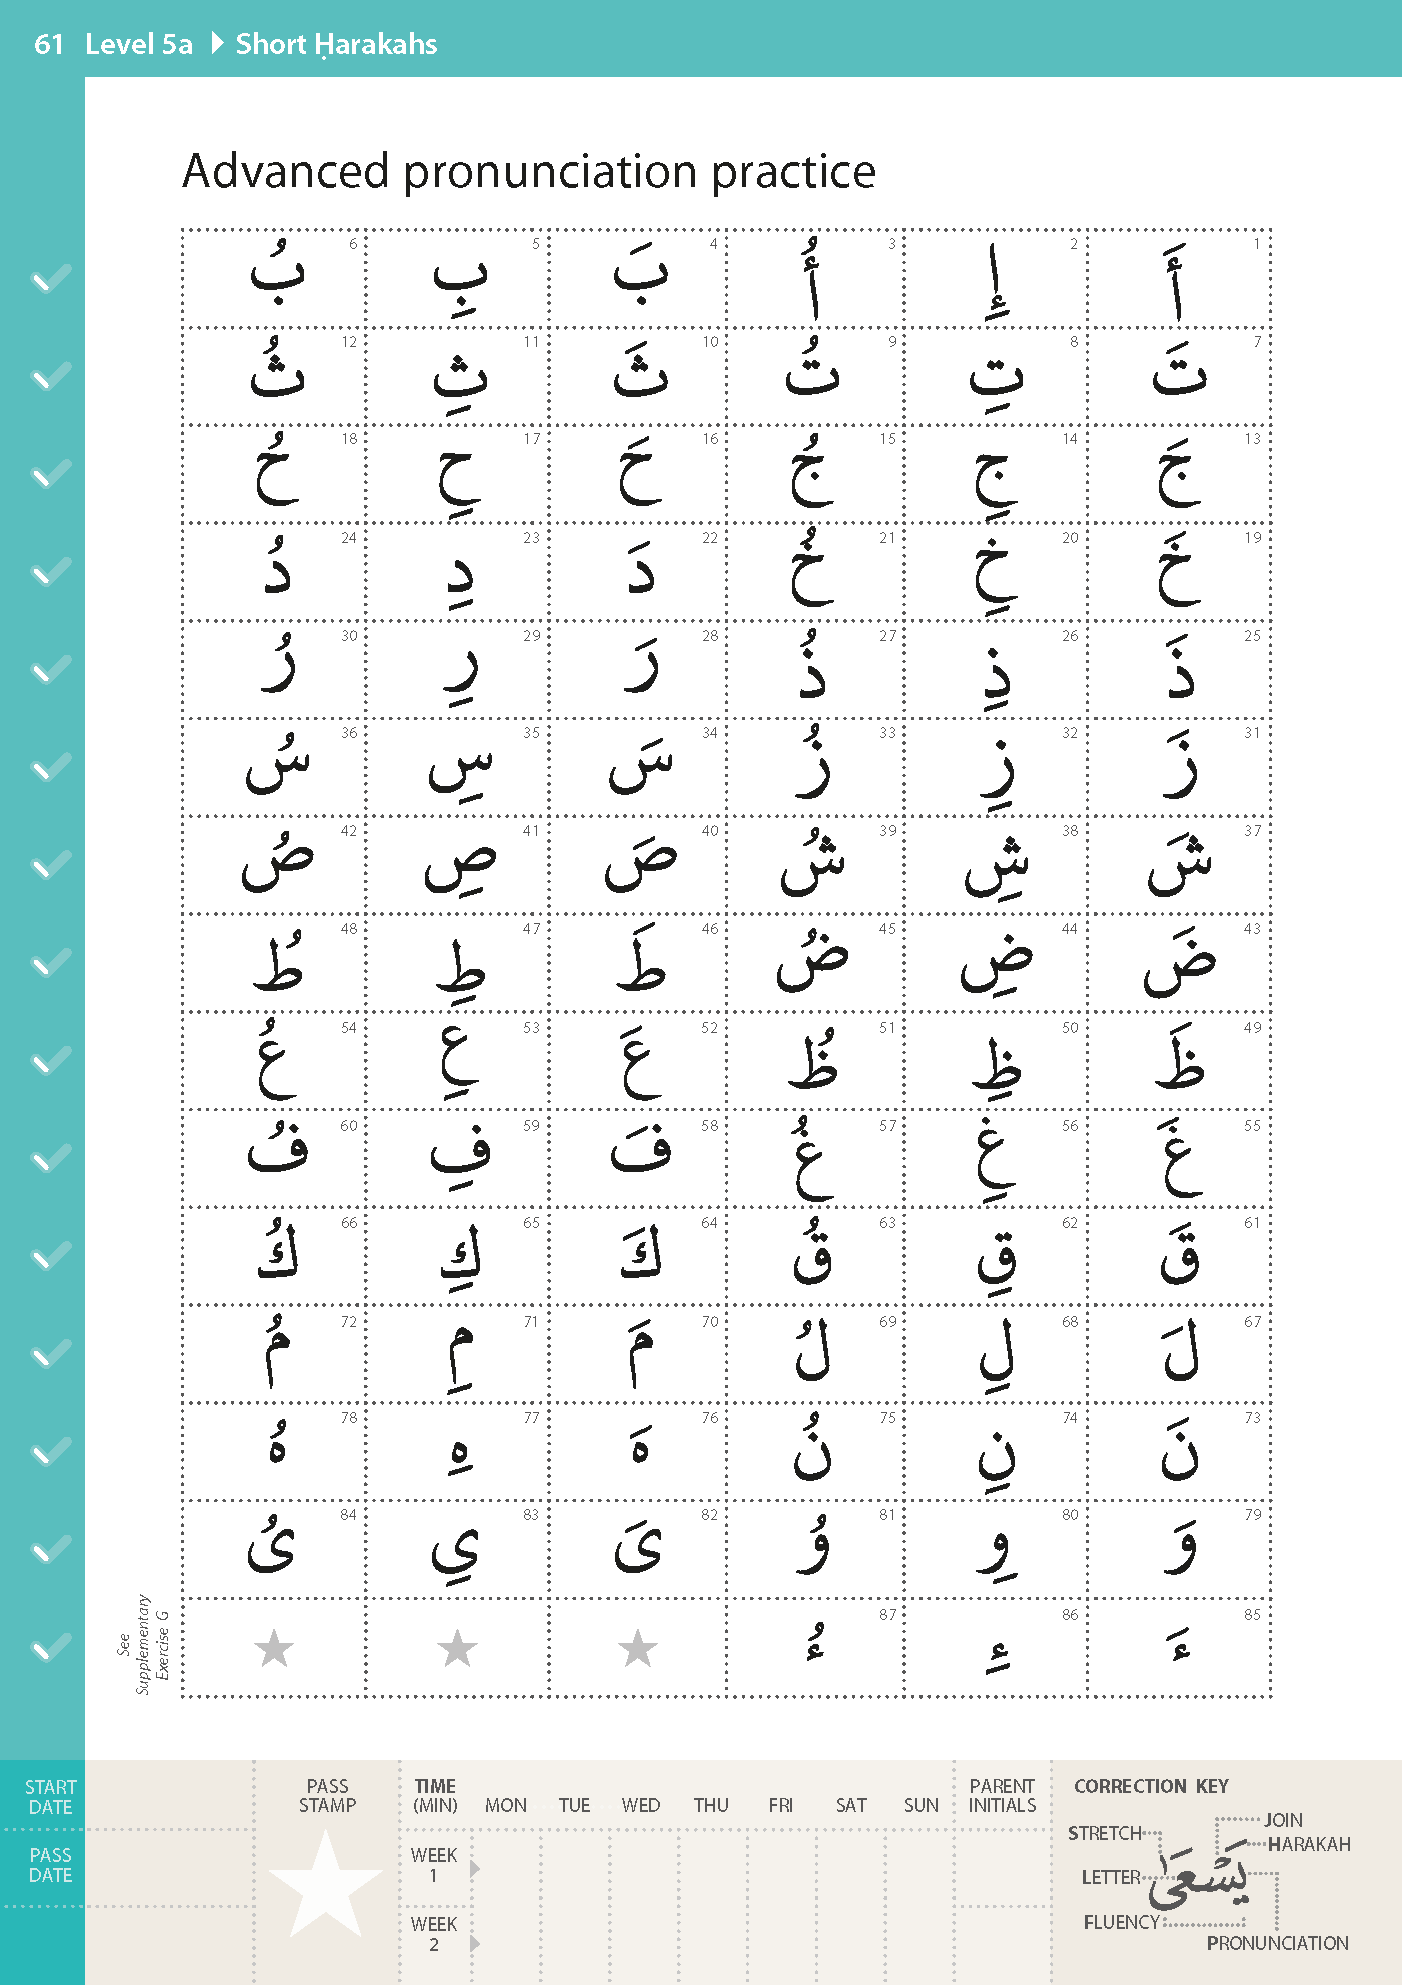 61 Level 5a Short Ḥarakahs
Advanced pronunciation practice
1 أَ 2 إِ 3 أُ 4 بَ 5 بِ 6 بُ
7 تَ 8 تِ 9 تُ 10 ثَ 11 ثِ 12 ثُ
13 جَ 14 جِ 15 جُ 16 حَ 17 حِ 18 حُ
19 خَ 20 خِ 21 خُ 22 دَ 23 دِ 24 دُ
25 ذَ 26 ذِ 27 ذُ 28 رَ 29 رِ 30 رُ
31 زَ 32 زِ 33 زُ 34 سَ 35 سِ 36 سُ
37 شَ 38 شِ 39 شُ 40 صَ 41 صِ 42 صُ
43 ضَ 44 ضِ 45 ضُ 46 طَ 47 طِ 48 طُ
49 ظَ 50 ظِ 51 ظُ 52 عَ 53 عِ 54 عُ
55 غَ 56 غِ 57 غُ 58 فَ 59 فِ 60 فُ
61 قَ 62 قِ 63 قُ 64 كَ 65 كِ 66 كُ
67 لَ 68 لِ 69 لُ 70 مَ 71 مِ 72 مُ
73 نَ 74 نِ 75 نُ 76 هَ 77 هِ 78 هُ
79 وَ 80 وِ 81 وُ 82 ىَ 83 ىِ 84 ىُ
85 ءَ 86 ءِ 87 ءُ
See
Supplementary
Exercise G
START
DATE
PASS
DATE
PASS
STAMP
TIME
(MIN) MON TUE WED THU FRI SAT SUN
WEEK
1
WEEK
2
PARENT
INITIALS
CORRECTION KEY
JOIN
STRETCH
HARAKAH
LETTER
يَسْعَىٰ
FLUENCY
PRONUNCIATION